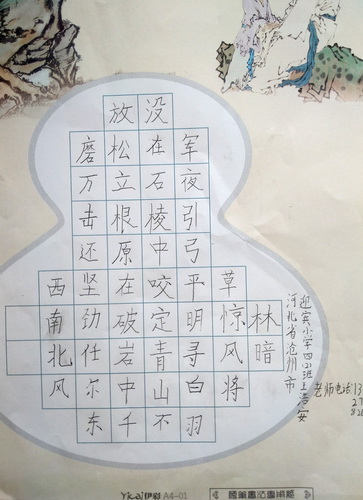 林暗
草惊风将
军夜引弓平明寻白羽
没在石棱中咬定青山不
放松立根原在破岩中千
磨万击还坚劲任尔东
西南北风
河北省沧州市
迎宾小学四
老师电话:13
伊彩 A4-01